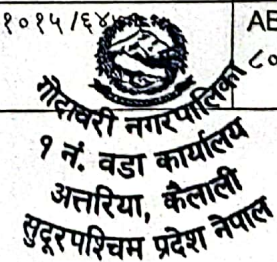 १०१५/६४
AE
८०
गोदावरी नगरपालिका
१ नं. वडा कार्यालय
अत्तरिया, कैलाली
सुदूरपश्चिम प्रदेश नेपाल